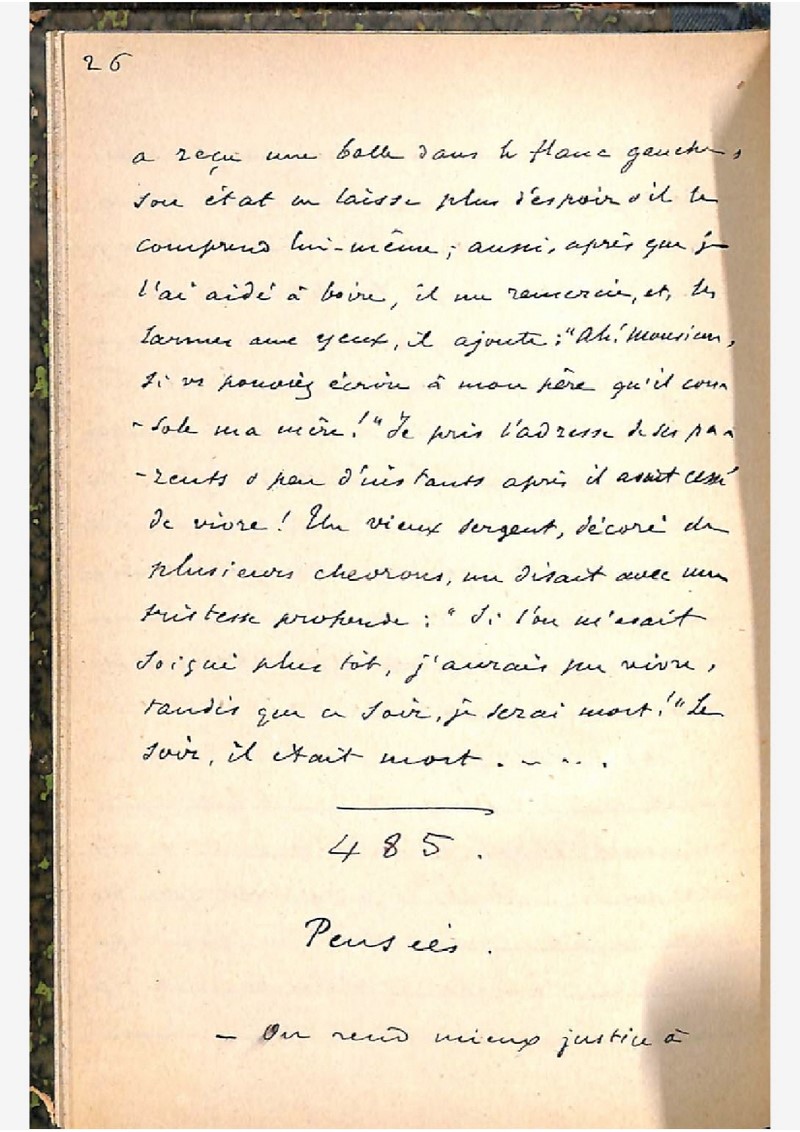 26
a reçu une balle dans le flanc gauche,
son état ne laisse plus d'espoir & il le
comprend lui-même ; aussi, après que je
l'ai aidé à boire, il me remercie, et, les
larmes aux yeux, il ajoute : "Ah! Monsieur,
si vs pouviez écrire à mon père qu'il con-
-sole ma mère!" Je pris l'adresse de ses pa-
-rents & peu d'instants après il avait cessé
de vivre ! Un vieux sergent, décoré de
plusieurs chevrons, me disait avec une
tristesse profonde : " Si l'on m'avait
soigné plus tôt, j'aurais pu vivre,
tandis que ce soir, je serai mort!" Le
soir, il était mort . - . . .
485.
Pensées.
- On rend mieux justice à